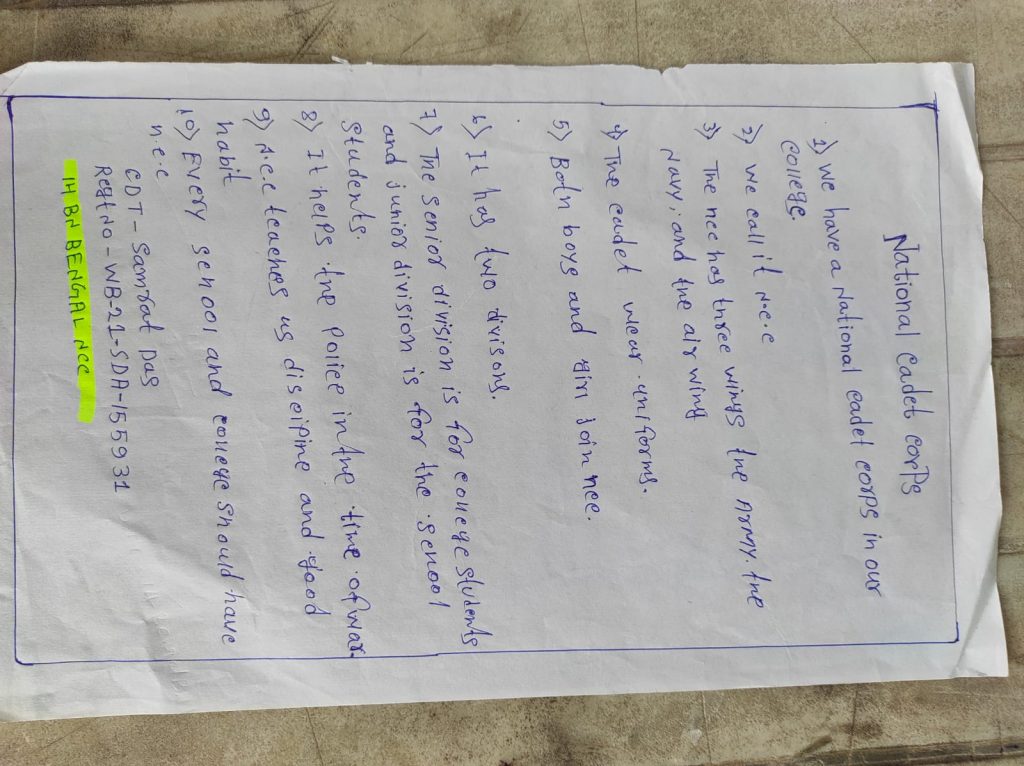 National cadet corps
1) we have a National cadet corps in our
college.
2) we call it N.c.c
3) The ncc has three wings the ARMY. the
Navy, and the air wing
4) The cadet wear uniforms.
5) Both boys and girl join ncc.
6) It has two divisons.
7) The senior division is for college students
and junior division is for the school
students.
8) It helps the police in the time of war.
9) N.cc teaches us discipine and good
habit
10) Every school and college should have
n.c.c
CDT - Samrat Das
Regt No - WB-21-SDA-155931
14 BN BENGAL NCC